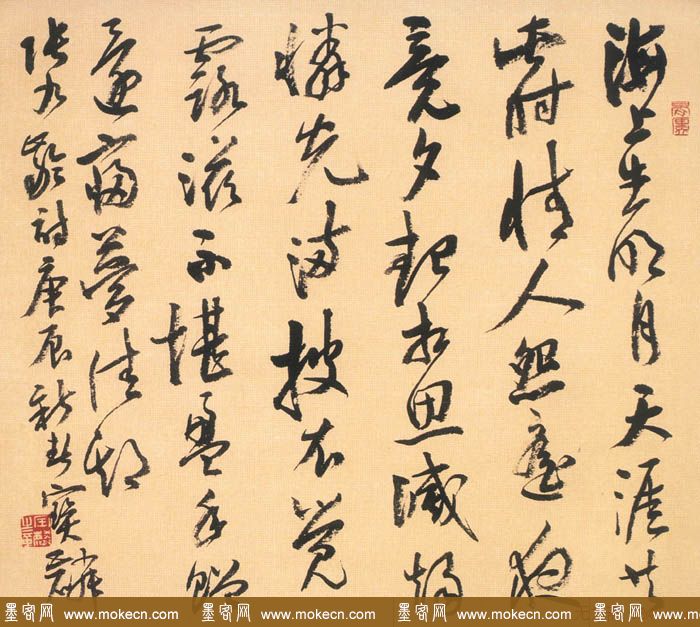 海上生明月天涯共
此時情人怨遙夜
竟夕起相思滅燭
憐光滿披衣覺
露滋不堪盈手贈
還寢夢佳期
張九齡詩庚辰新春寶麟
墨客网 www.mokecn.com 墨客网 www.mokecn.com 墨客网 www.mokecn.com 墨客网 www.mo